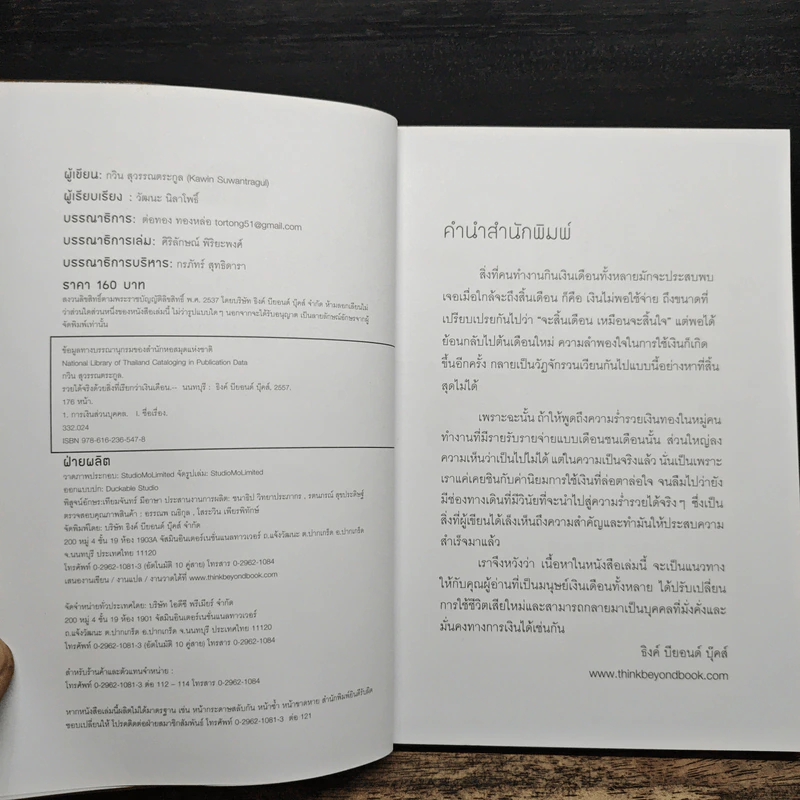 ผู้เขียน: กวิน สุวรรณตระกูล (Kawin Suwantragul)
ผู้เรียบเรียง : วัฒนะ นิลาโพธิ์
บรรณาธิการ: ต่อทอง ทองหล่อ tortong51@gmail.com
บรรณาธิการเล่ม: ศิริลักษณ์ พิริยะพงศ์
บรรณาธิการบริหาร: กรภัทร์ สุทธิดารา
ราคา 160 บาท
สงวนลิขสิทธิ์ตามพระราชบัญญัติลิขสิทธิ์ พ.ศ. 2537 โดยบริษัท ธิงค์ บียอนด์ บุ๊คส์ จำกัด ห้ามลอกเลียนไม่
ว่าส่วนใดส่วนหนึ่งของหนังสือเล่มนี้ ไม่ว่ารูปแบบใดๆ นอกจากจะได้รับอนุญาต เป็นลายลักษณ์อักษรจากผู้
จัดพิมพ์เท่านั้น
ข้อมูลทางบรรณานุกรมของสำนักหอสมุดแห่งชาติ
National Library of Thailand Cataloging in Publication Data
กวิน สุวรรณตระกูล.
รวยได้จริงด้วยสิ่งที่เรียกว่าเงินเดือน.-- นนทบุรี : ธิงค์ บียอนด์ บุ๊คส์, 2557.
176 หน้า.
1. การเงินส่วนบุคคล. I. ชื่อเรื่อง.
332.024
ISBN 978-616-236-547-8
ฝ่ายผลิต
วาดภาพประกอบ: StudioMoLimited จัดรูปเล่ม: StudioMoLimited
ออกแบบปก: Duckable Studio
พิสูจน์อักษร:เทียมจันทร์ มีอาษา ประสานงานการผลิต: ชนาธิป วิทยาประภากร , รตนภรณ์ สุขประดิษฐ์
ตรวจสอบคุณภาพสินค้า : อรรณพ ณธิกุล , ไสรวิน เพียรพิทักษ์
จัดพิมพ์โดย: บริษัท ธิงค์ บียอนด์ บุ๊คส์ จำกัด
200 หมู่ 4 ชั้น 19 ห้อง 1903A จัสมินอินเตอร์เนชั่นแนลทาวเวอร์ ถ.แจ้งวัฒนะ ต.ปากเกร็ด อ.ปากเกร็ด
จ.นนทบุรี ประเทศไทย 11120
โทรศัพท์ 0-2962-1081-3 (อัตโนมัติ 10 คู่สาย) โทรสาร 0-2962-1084
เสนองานเขียน / งานแปล / งานวาดได้ที่ www.thinkbeyondbook.com
จัดจำหน่ายทั่วประเทศโดย: บริษัท ไอดีซี พรีเมียร์ จำกัด
200 หมู่ 4 ชั้น 19 ห้อง 1901 จัสมินอินเตอร์เนชั่นแนลทาวเวอร์
ถ.แจ้งวัฒนะ ต.ปากเกร็ด อ.ปากเกร็ด จ.นนทบุรี ประเทศไทย 11120
โทรศัพท์ 0-2962-1081-3 (อัตโนมัติ 10 คู่สาย) โทรสาร 0-2962-1084
สำหรับร้านค้าและตัวแทนจำหน่าย :
โทรศัพท์ 0-2962-1081-3 ต่อ 112 – 114 โทรสาร 0-2962-1084
หากหนังสือเล่มนี้ผลิตไม่ได้มาตรฐาน เช่น หน้ากระดาษสลับกัน หน้าซ้ำ หน้าขาดหาย สำนักพิมพ์ยินดีรับผิด
ชอบเปลี่ยนให้ โปรดติดต่อฝ่ายสมาชิกสัมพันธ์ โทรศัพท์ 0-2962-1081-3 ต่อ 121
คำนำสำนักพิมพ์
สิ่งที่คนทำงานกินเงินเดือนทั้งหลายมักจะประสบพบ
เจอเมื่อใกล้จะถึงสิ้นเดือน ก็คือ เงินไม่พอใช้จ่าย ถึงขนาดที่
เปรียบเปรยกันไปว่า “จะสิ้นเดือน เหมือนจะสิ้นใจ” แต่พอได้
ย้อนกลับไปต้นเดือนใหม่ ความลำพองใจในการใช้เงินก็เกิด
ขึ้นอีกครั้ง กลายเป็นวัฏจักรวนเวียนกันไปแบบนี้อย่างหาที่สิ้น
สุดไม่ได้
เพราะฉะนั้น ถ้าให้พูดถึงความร่ำรวยเงินทองในหมู่คน
ทำงานที่มีรายรับรายจ่ายแบบเดือนชนเดือนนั้น ส่วนใหญ่ลง
ความเห็นว่าเป็นไปไม่ได้ แต่ในความเป็นจริงแล้ว นั่นเป็นเพราะ
เราแค่เคยชินกับค่านิยมการใช้เงินที่ล่อตาล่อใจ จนลืมไปว่ายัง
มีช่องทางเดินที่มีวินัยที่จะนำไปสู่ความร่ำรวยได้จริงๆ ซึ่งเป็น
สิ่งที่ผู้เขียนได้เล็งเห็นถึงความสำคัญและทำมันให้ประสบความ
สำเร็จมาแล้ว
เราจึงหวังว่า เนื้อหาในหนังสือเล่มนี้ จะเป็นแนวทาง
ให้กับคุณผู้อ่านที่เป็นมนุษย์เงินเดือนทั้งหลาย ได้ปรับเปลี่ยน
การใช้ชีวิตเสียใหม่และสามารถกลายมาเป็นบุคคลที่มั่งคั่งและ
มั่นคงทางการเงินได้เช่นกัน
ธิงค์ บียอนด์ บุ๊คส์
www.thinkbeyondbook.com